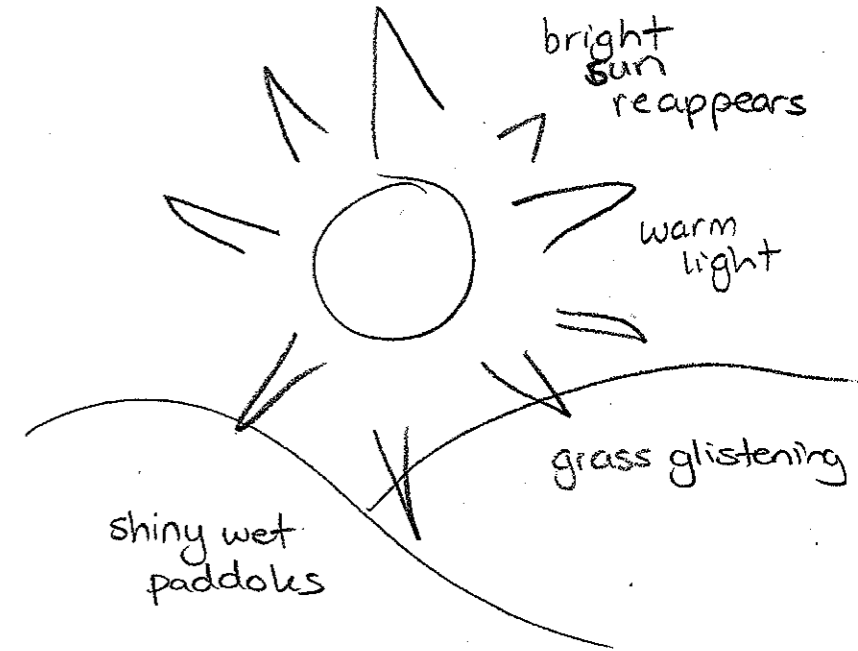 bright
sun
reappears
warm
light
grass glistening
shiny wet
paddoks